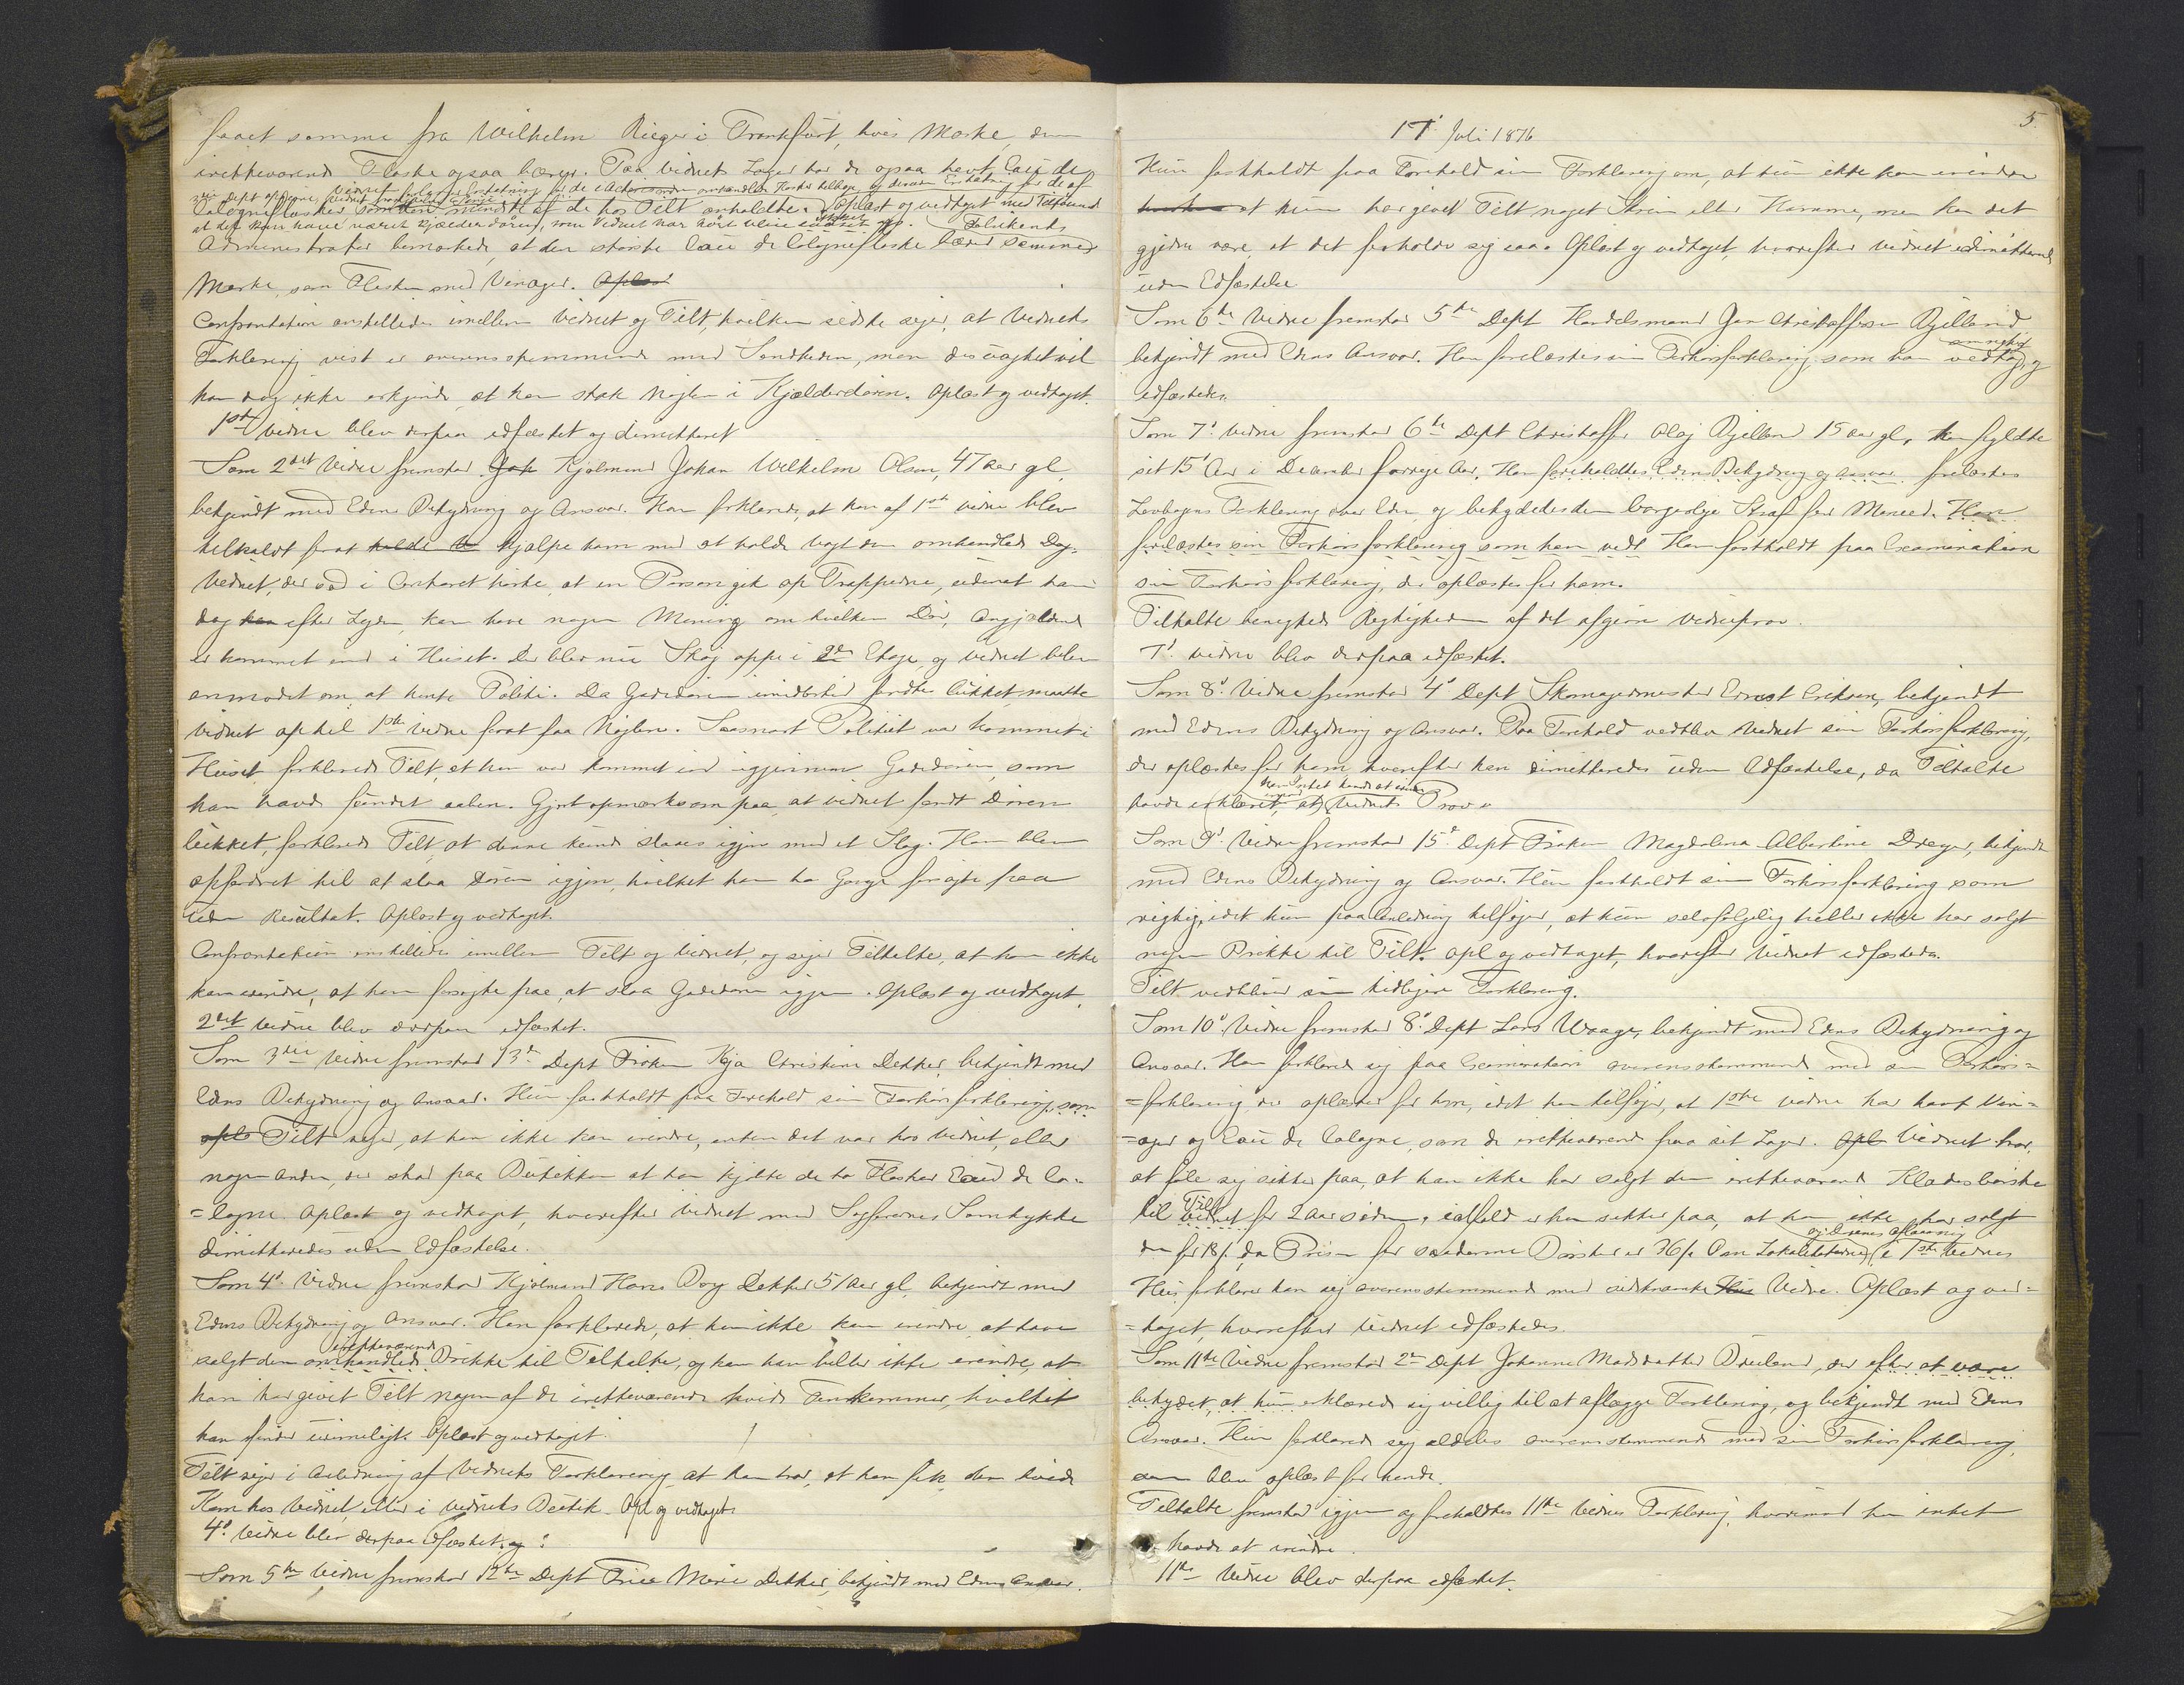 faaet samme fra Wilhelm Rieger i Frankfurt, hvis Mærke den
iretteværende Flaske ogsaa bærer. Paa vidnets Lager har de ogsaa havt Eau de
Colognefla­sker som den mindste af de hos Tilt anholdte. Oplæst og vedtaget med Tilføiende
at det kan have været Kjælderdøren, som vidnet har hørt blive lukket op.
Administrator bemærkede, at den største Eau de Cologneflaske bærer samme
Mærke, som Flasken med Vinaigre.
Confrontation anstilledes imellem Vidnet og Tilt, hvilken sidste siger, at Vidnets
Forklaring vist er overensstemmende med Sandheden, men desuagtet vil
han dog ikke erkjende, at han stak Nøglen i Kjælderdøren. Oplæst og vedtaget.
1ste Vidne blev derpaa edfæstet og dimitteret
Som 2det Vidne fremstod Kjøbmand Johan Wilhelm Olsen, 47 Aar gl,
bekjendt med Edens Betydning og Ansvar. Han forklarede, at han af 1ste vidne blev
tilkaldt for at hjælpe ham med at holde Vagt den omhandlede Dag.
Vidnet, der sad i Contoret hørte, at en Person gik op Trapperne, uden at han
dog efter Lyden kan have nogen Mening om hvilken Dør, Angjældende
er kommet ind i Huset. Der blev nu Støj oppe i 2den Etage, og vidnet blev
anmodet om at hente Politi. Da Gadedøren imidlertid fandtes lukket, maatte
vidnet op til 1ste vidne forat faa Nøglen. Saasnart Politiet var kommet i
Huset, forklarede Tilt, at han var kommet ind igjennem Gadedøren, som
han havde fundet aaben. Gjort opmærksom paa, at vidnet fandt Døren
lukket, forklarede Tilt, at denne kunde slaaes igjen med et Slag. Han blev
opfordret til at slaa Døren igjen, hvilket han to Gange forsøgte paa
uden Resultat. Oplæst og vedtaget.
Confrontation anstilledes imellem Tilt og vidnet, og siger Tiltalte, at han ikke
kan erindre, at han forsøgte paa, at slaa Gadedøren igjen. Oplæst og vedtaget.
2det Vidne blev derpaa edfæstet.
Som 3die Vidne fremstod 13de Dept Frøken Kja Christine Dekker, bekjendt med
Edens Betydning og Ansvar. Hun fastholdt paa Forehold sin Forhørsforklaring, som
Tilt siger, at han ikke kan erindre, enten det var hos Vidnet, eller
nogen anden, der stod paa Butikken at han kjøbte de to Flasker Eau de Co-
=logne. Oplæst og vedtaget, hvorefter vidnet med Sagførernes Samtykke
dimitteredes uden Edfæstelse.
Som 4de Vidne fremstod Kjøbmand Hans Roy Dekker 51 Aar gl, bekjendt med
Edens Betydning og Ansvar. Han forklarede, at han ikke kan erindre at have
iretteværende
solgt den omhandlede Brikke til Tiltalte, og kan han heller ikke erindre, at
han har givet Tilt nogen af de iretteværende hvide Finkammer, hvilket
han finder urimeligt. Oplæst og vedtaget.
Tilt siger i Anledning af Vidnets Forklaring at han tror, at han fik den hvide
Kam hos Vidnet, eller i vidnets Butik. Opl og vedtaget.
4de Vidne blev derpaa edfæstet.
Som 5te Vidne fremstod 12te Dept Frue Marie Dekker, bekjendt med Edens Ansvar.
5.
17' Juli 1876
Hun fastholdt paa Forehold sin Forklaring om, at hun ikke kan erindre
at hun har givet Tilt noget Skrin eller Kamme, men kan det
gjerne være, at det forholder sig saa. Oplæst og vedtaget, hvorefter Vidnet dimitteredes
uden Edfæstelse
Som 6te Vidne fremstod 5te Dept Handelsmand Jan Christoffersen Bjelland
bekjendt med Edens Ansvar. Han forelæstes sin Forhørsforklaring, som han vedtog og
edfæstedes.
Som 7' Vidne fremstod 6te Dept Christoffer Olaj Bjelland 15 Aar gl, han fyldte
sit 15' Aar i December forrige Aar. Han foreholdtes Edens Betydning og Ansvar, forelæstes
Lovbogens Forklaring over Eden, og betydedes den borgerlige Straf for Meneed. Han
forelæstes sin Forhørsforklaring som han vedt Han fastholdt paa Examination
sin Forhørsforklaring, der oplæstes for ham.
Tiltalte benegtede Rigtigheden af det afgivne Vidneprov.
7' Vidne blev derpaa edfæstet.
Som 8' Vidne fremstod 4' Dept Skomagermester Ernst Eriksen, bekjendt
med Edens Betydning og Ansvar. Paa Forehold vedblev Vidnet sin Forhørsforklaring,
der oplæstes for ham hvorefter han dimitteredes uden Edfæstelse, da Tiltalte
havde erklæret, at Vidnets Prov.
Som 9' Vidne fremstod 15' Dept Frøken Magdalena Albertine Dreyer, bekjendt
med Edens Betydning og Ansvar. Hun fastholdt sin Forhørsforklaring som
rigtig, idet hun paa Anledning tilføjer, at hun selvfølgelig heller ikke har solgt
nogen Brikke til Tilt. Opl og vedtaget, hvorefter Vidnet edfæstedes.
Tilt vedbliver sin tidligere Forklaring.
Som 10' Vidne fremstod 8' Dept Lars Waage, bekjendt med Edens Betydning og
Ansvar. Han forklarede sig paa Examination overensstemmende med sin Forhørs=
=forklaring der oplæstes for ham, idet han tilføjer, at 1ste vidne har havt Vin=
=aiger og Eau de Cologne, som de iretteværende paa sit Lager. Vidnet tror,
at føle sig sikker paa, at han ikke har solgt den iretteværende Klædesbørste
til Tilt for 2 Aar siden, ialfald er han sikker paa, at han ikke har solgt
den for 18 s, da Prisen for saadanne Børster er 36 s. Om Lokaliteterne i 1ste Vidnes
Huus forklarer han sig overensstemmende med sidstnævnte Vidne. Oplæst og ved=
=taget, hvorefter Vidnet edfæstedes.
Som 11te Vidne fremstod 2' Dept Johanne Madsdatter Bruland, der efter at være
betydet, at hun erklærede sig villig til at aflægge Forklaring, og bekjendt med Edens
Ansvar. Hun forklarede sig aldeles overensstemmende med sin Forhørsforklaring,
som blev oplæst for hende.
Tiltalte fremstod igjen og foreholdtes 11te Vidnes Forklaring, hvorimod han intet
havde at erindre.
11te Vidne blev derpaa edfæstet.